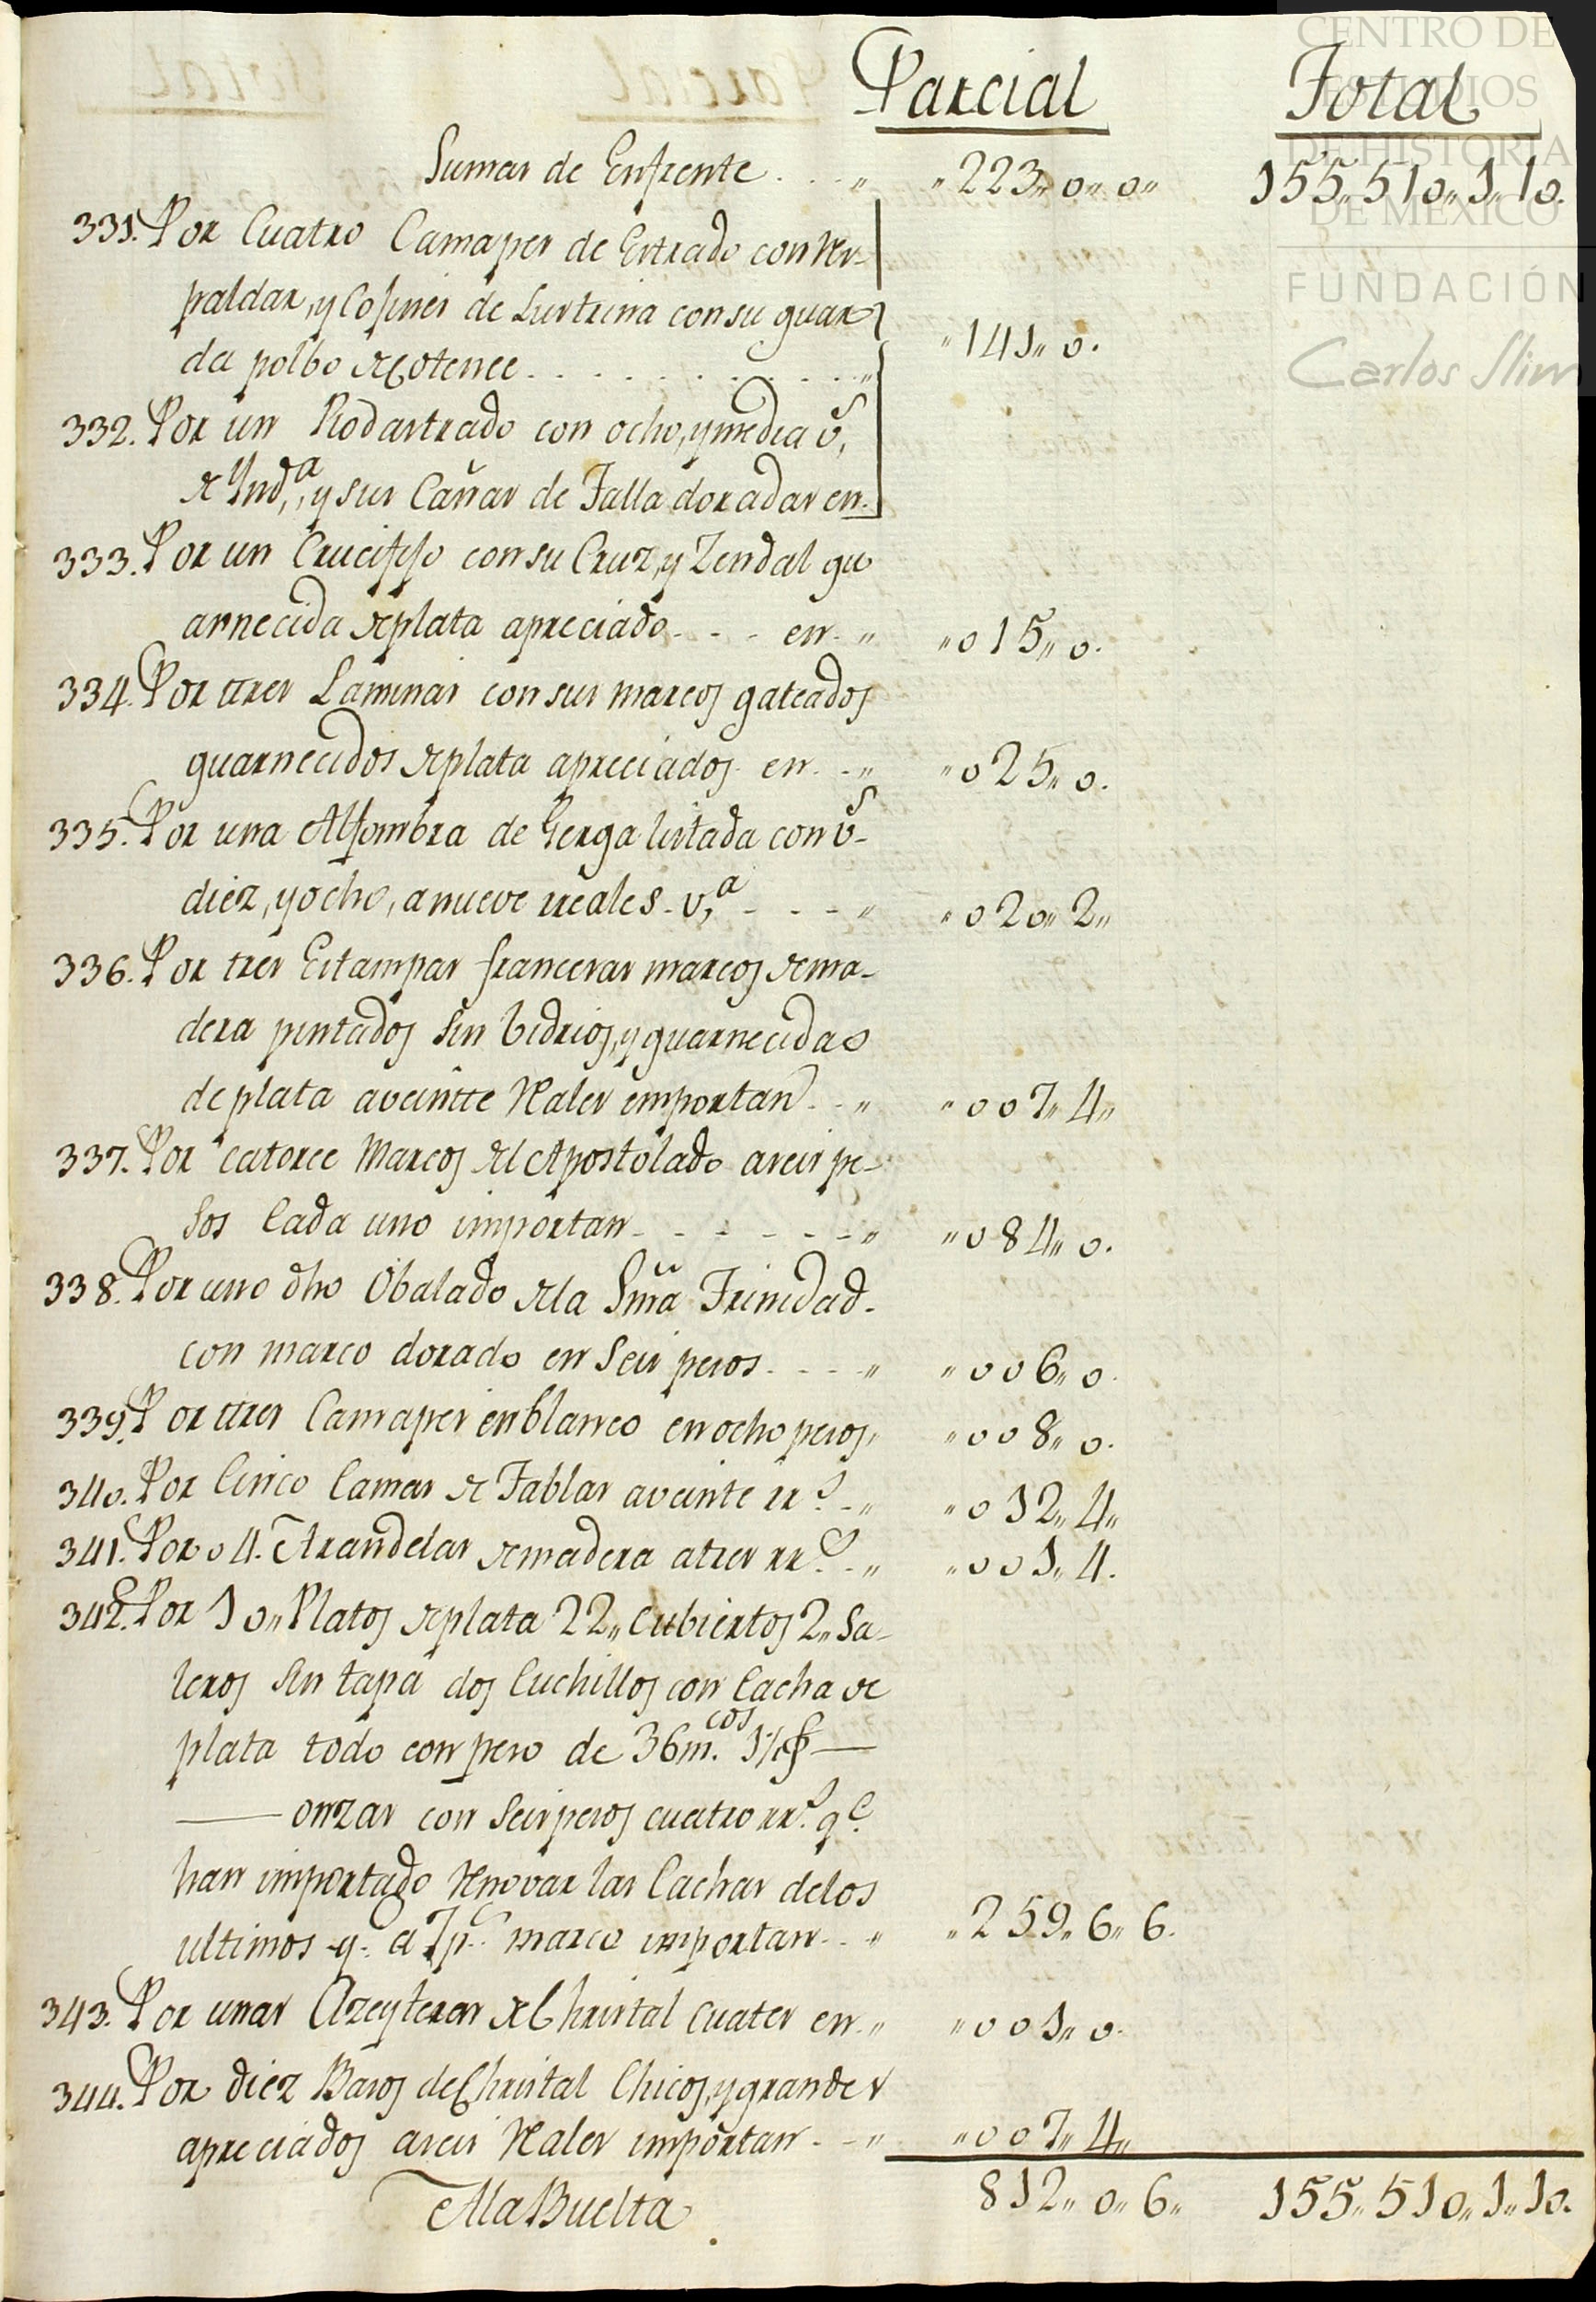 Parcial Total
Sumas de Enfrente . . . „ „223„ 0„ 0„ 155„ 510„ 1„ 10.
331. Por Cuatro Camapes de Estrado con Res-
paldar, y Cojines de Lustrina con su guar
da polbo de Cotence . . . . . . . . . . „ „141„ 0.
332. Por un Rodastrado con ocho, y media v.s
de Ynd.a, y sus Cañas de Talla doradas en.
333. Por un Crucifijo con su Cruz, y Zendal gu
arnecida de plata apreciado - - - en - „ „015„ 0.
334. Por tres Laminas con sus marcos gateados
guarnecidos de plata apreciados en - - „ „025„ 0.
335. Por una Alfombra de Gerga listada con v.s -
diez, y ocho, a nueve reales v.a - - - „ „020„ 2„
336. Por tres Estampas francesas marcos de ma-
dera pintados sin bidrios, y guarnecidas
de plata a veintte Reales importan - - „ „007„ 4„
337. Por catorce Marcos del Apostolado a seis pe-
sos Cada uno importan - - - - - - „ „084„ 0.
338. Por uno dho Obalado de la Sma Trinidad -
con marco dorado en Seis pesos - - - - „ „006„ 0.
339. Por tres Camapes en blanco en ocho pesos„ „008„ 0.
340. Por Cinco Camas de Tablas a veinte rr.s - „ „012„ 4„
341. Por 04. Arandelas de madera a tres rr.s - „ „001„ 4.
342. Por 10„ Platos de plata 22„ Cubiertos 2„ Sa-
leros sin tapa dos Cuchillos con Cacha de
plata todo con peso de 36 m.cos —
— onzas con Seis pesos cuatro rr.s q.e
han importado Renovar las Cachas de los
ultimos q.e a 7 p.s marco importan - - „ „259„ 6„ 6.
343. Por unas Azeyteras de Christal Cuates en - „ „001„ 0.
344. Por diez Basos de Christal Chicos, y grandes
apreciados a seis Reales importan - - „ „007„ 4„
A la Buelta 812„ 0„ 6„ 155„ 510„ 1„ 10.
CENTRO DE
ESTUDIOS
DE HISTORIA
DE MÉXICO
FUNDACIÓN
Carlos Slim